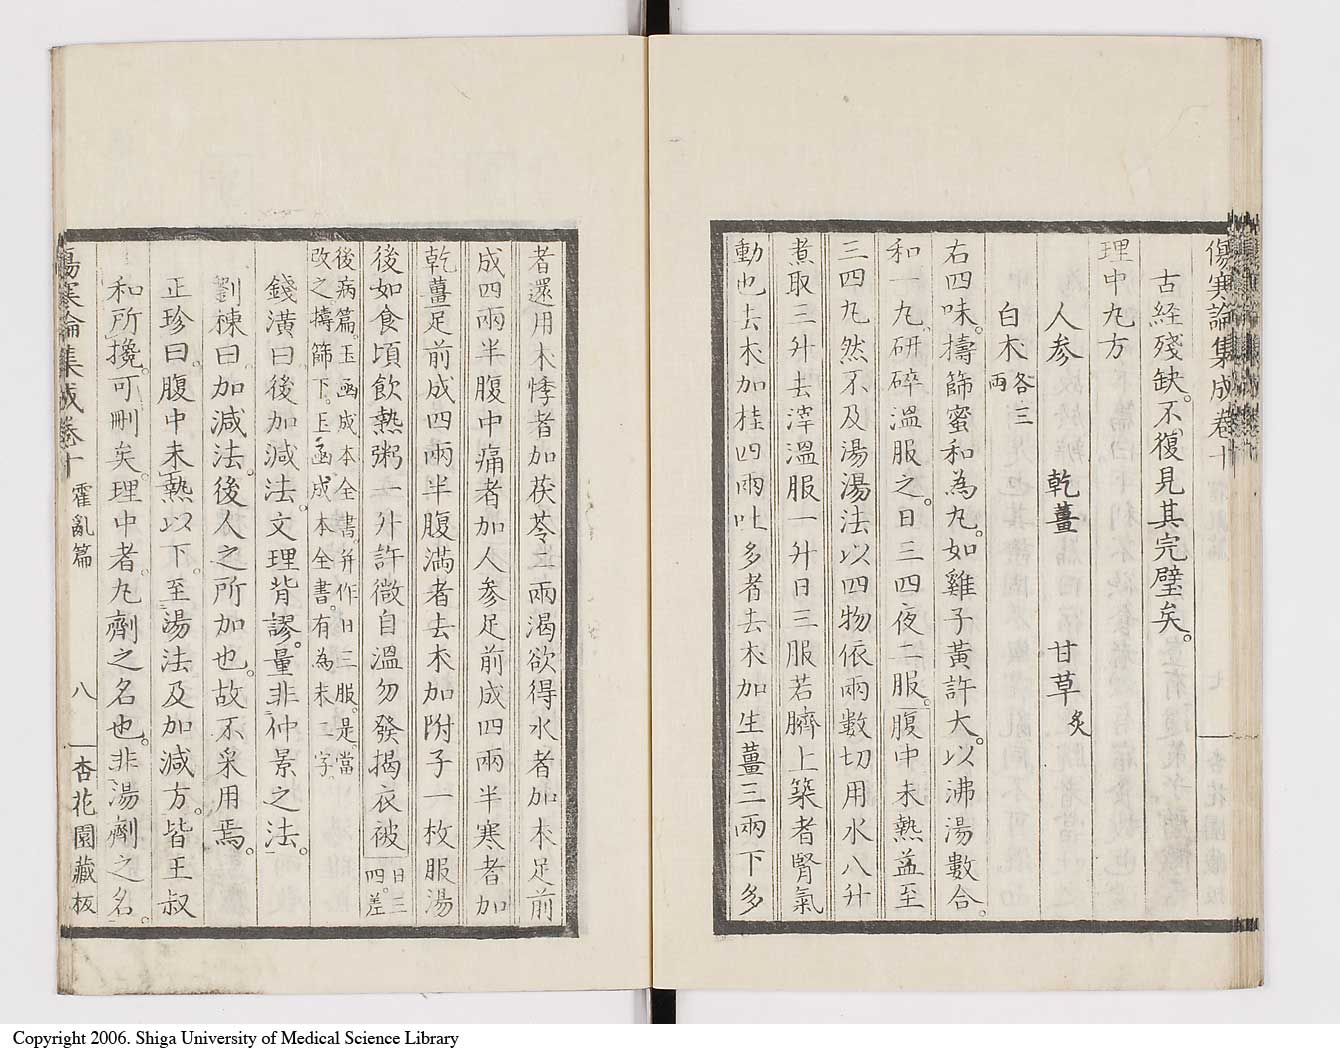 傷寒論集成卷十
古経殘缺。不復見其完璧矣。
理中丸方
人参 乾薑 甘草炙
白朮各三兩
右四味。擣篩蜜和為丸。如雞子黃許大。以沸湯數合。
和一丸。研碎溫服之。日三四夜二服。腹中未熱益至
三四丸然不及湯湯法以四物依兩數切用水八升
煮取三升去滓溫服一升日三服若臍上築者腎氣
動也去朮加桂四兩吐多者去朮加生薑三兩下多
者還用朮悸者加茯苓二兩渴欲得水者加朮足前
成四兩半腹中痛者加人参足前成四兩半寒者加
乾薑足前成四兩半腹満者去朮加附子一枚服湯
後如食頃飲熱粥一升許微自溫勿發揭衣被日三四。差
後病篇。玉函成本全書并作日三服。是。當
改之擣篩下。玉函成本全書。有為末二字
錢潢曰後加減法。文理背謬。量非仲景之法。
劉棟曰。加減法。後人之所加也。故不采用焉。
正珍曰。腹中未熱以下。至湯法及加減方。皆王叔
和所攙。可刪矣。理中者。丸劑之名也。非湯劑之名。
傷寒論集成卷十 霍亂篇 八 杏花園藏板
Copyright 2006. Shiga University of Medical Science Library